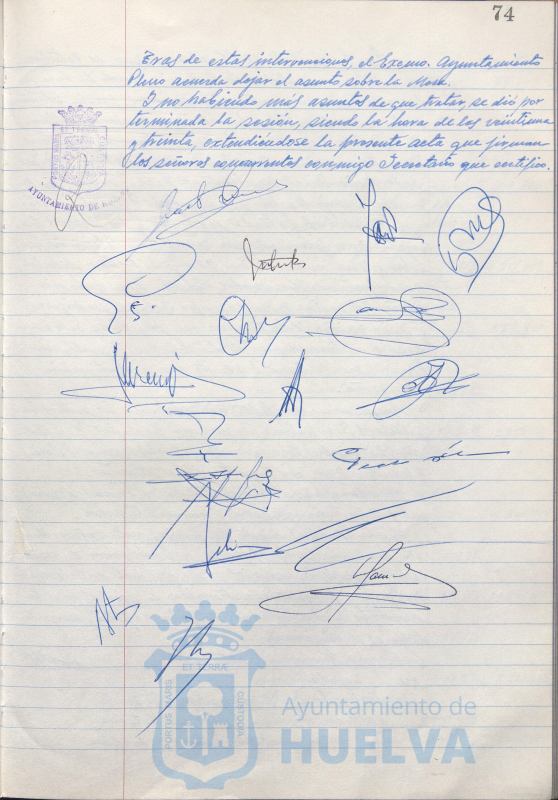 74
Tras de estas intervenciones, el Excmo. Ayuntamiento
Pleno acuerda dejar el asunto sobre la Mesa.
Y no habiendo más asuntos de que tratar, se dió por
terminada la sesión, siendo la hora de las veintiuna
y treinta, extendiéndose la presente acta que firman
los señores concurrentes conmigo Secretario que certifico.
AYUNTAMIENTO DE HUELVA
PORTUS MARIS
ET TERRÆ
CUSTODIA
Ayuntamiento de
HUELVA